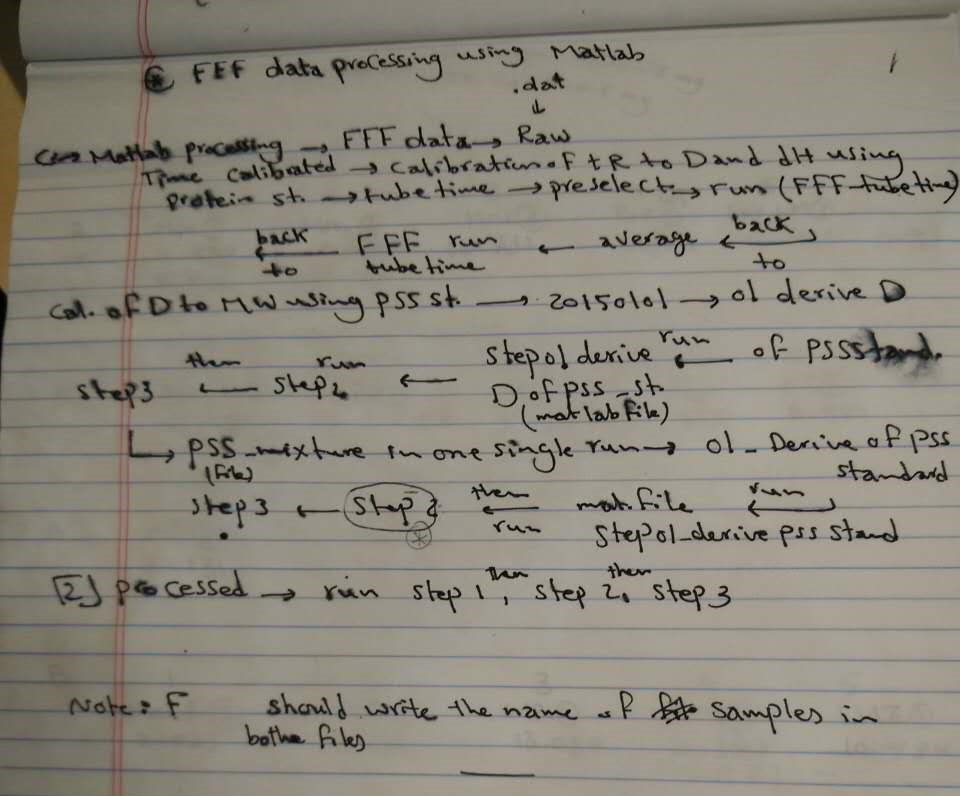 * FFF data processing using Matlab 1
.dat
↓
Matlab processing → FFF data → Raw
Time calibrated → calibration of tR to D and dH using
protein st. → tube time → preselect. → run (FFF-tubetime)
back to ← FFF run tubetime ← average ← back to
Cal. of D to MW using PSS st. → 20150101 → 01 derive D
step3 ← then step2 run ← step01 derive D of pss_st. (matlab file) ← run of PSS stand.
↳ PSS_mixture in one single run → 01_Derive of pss
(file) standard
step3 ← step2 ← then run mat.file ← run
* step01_derive pss stand
[2] processed → run step 1, then step 2, then step 3
Note: F should write the name of samples in
both files